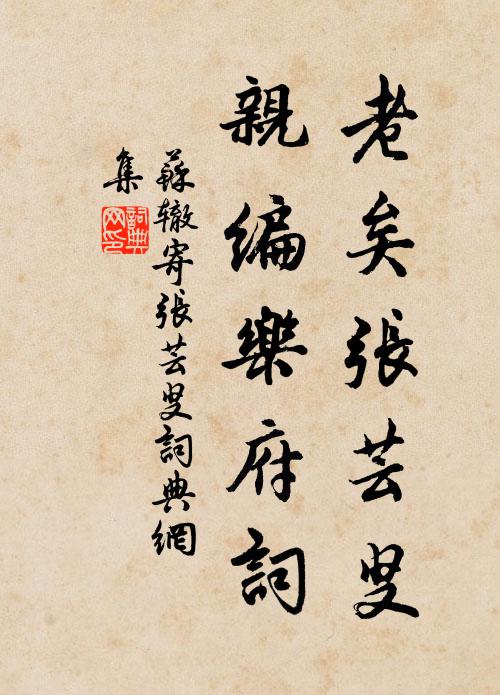 老矣張芸叟
親編樂府詞
蘇轍寄張芸叟詞典網
集
詞典
网印